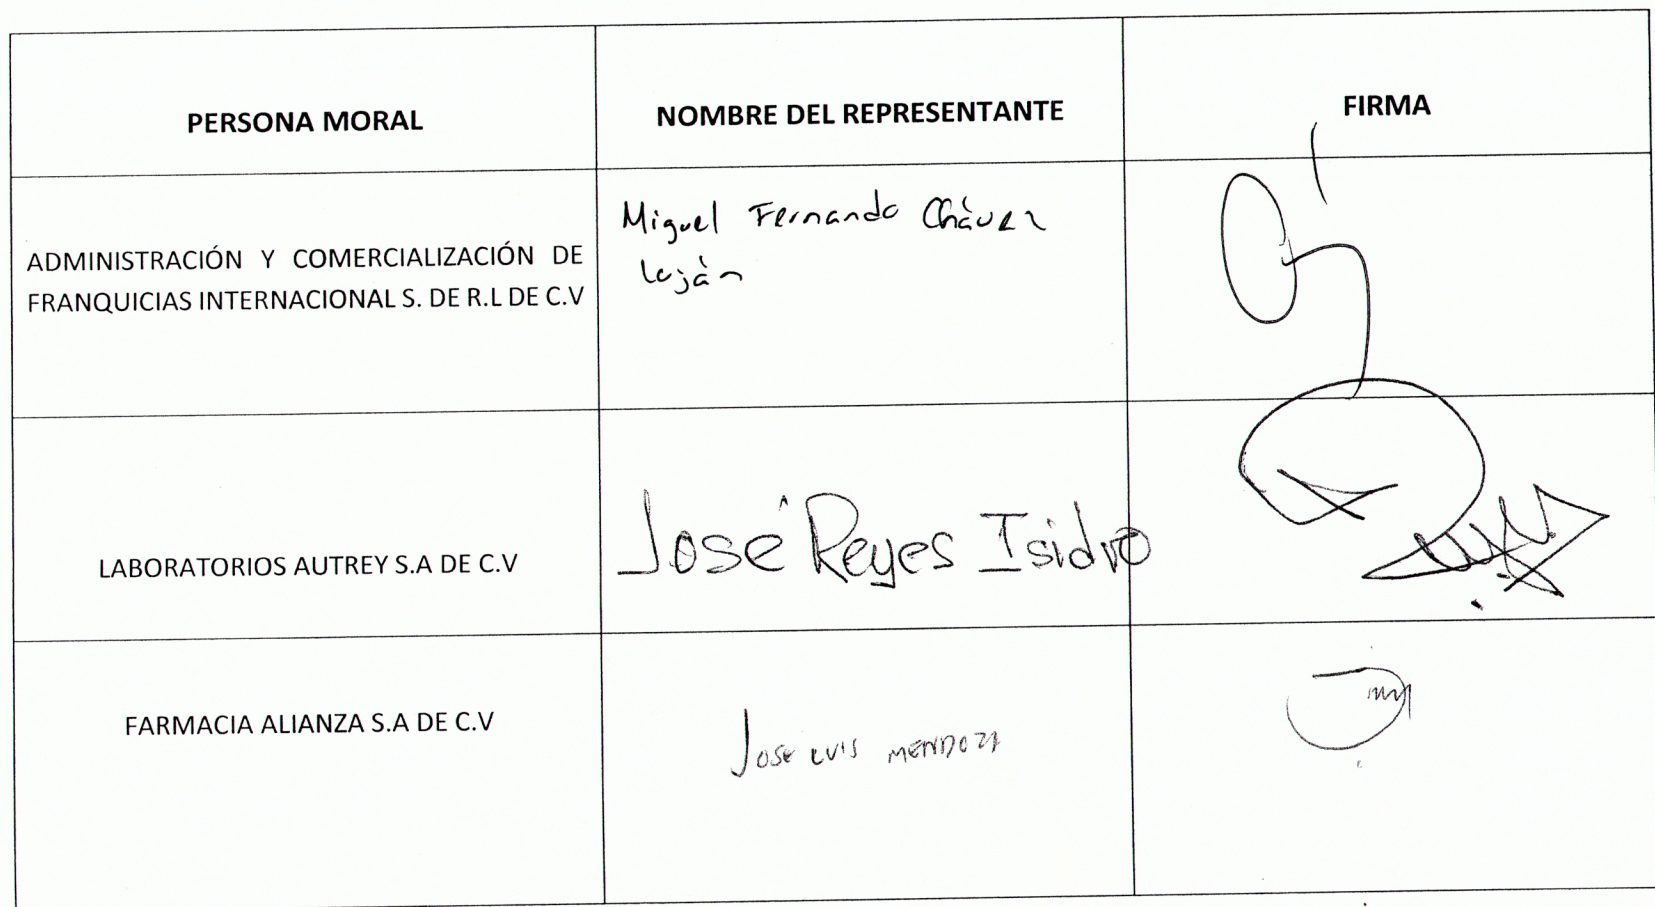 PERSONA MORAL
NOMBRE DEL REPRESENTANTE
FIRMA
ADMINISTRACIÓN Y COMERCIALIZACIÓN DE
FRANQUICIAS INTERNACIONAL S. DE R.L DE C.V
Miguel Fernando Chávez
Luján
LABORATORIOS AUTREY S.A DE C.V
José Reyes Isidro
FARMACIA ALIANZA S.A DE C.V
JOSE LUIS MENDOZA